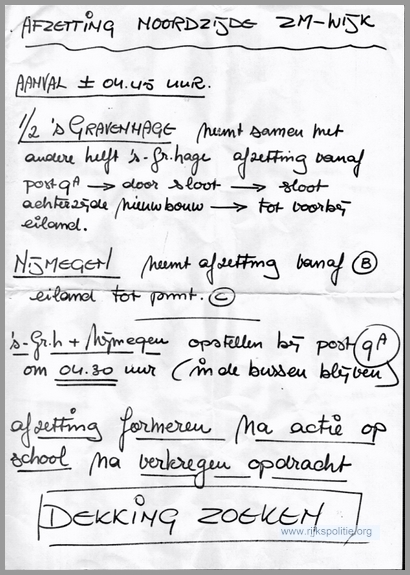 AFZETTING NOORDZIJDE ZM-WIJK
AANVAL ± 04.45 UUR.
1/2 'S GRAVENHAGE neemt samen met
andere helft 's-Gr.hage afzetting vanaf
post 9A → door sloot → sloot
achterzijde nieuwbouw → tot voorbij
eiland.
NIJMEGEN neemt afzetting vanaf (B)
eiland tot punt. (C)
's-Gr.h + Nijmegen opstellen bij post 9A
om 04.30 uur (in de bussen blijven)
afzetting formeren na actie op
school na verkregen opdracht
DEKKING ZOEKEN
www.rijkspolitie.org